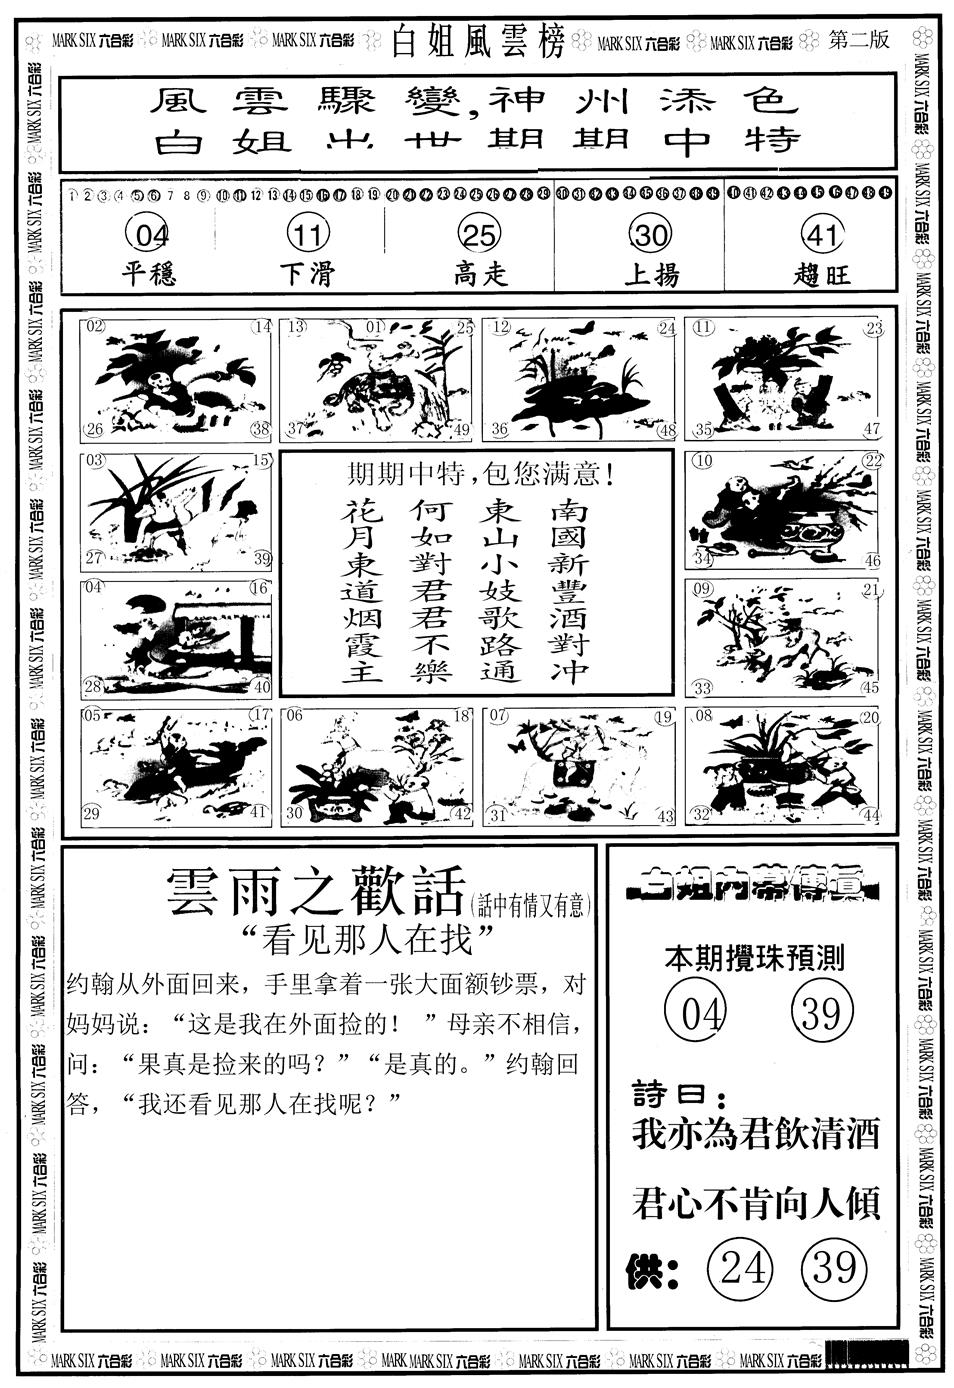 MARK SIX 六合彩 MARK SIX 六合彩 MARK SIX 六合彩 白姐風雲榜 MARK SIX 六合彩 MARK SIX 六合彩 第二版
風雲驟變,神州添色
白姐出世期期中特
1 2 3 4 5 6 7 8 9 10 11 12 13 14 15 16 17 18 19 20 21 22 23 24 25 26 27 28 29 30 31 32 33 34 35 36 37 38 39 40 41 42 43 44 45 46 47 48 49
04 11 25 30 41
平穩 下滑 高走 上揚 趨旺
02 14 13 01 25 12 24 11 23
26 38 37 49 36 48 35 47
03 15 10 22
27 39 34 46
04 16 09 21
28 40 33 45
期期中特,包您满意!
南國新豐酒對冲
東山小妓歌路通
何如對君君不樂
花月東道烟霞主
05 17 06 18 07 19 08 20
29 41 30 42 31 43 32 44
雲雨之歡話(話中有情又有意)
“看见那人在找”
约翰从外面回来，手里拿着一张大面额钞票，对
妈妈说：“这是我在外面捡的！”母亲不相信，
问：“果真是捡来的吗？”“是真的。”约翰回
答，“我还看见那人在找呢？”
白姐内幕傳真
本期攪珠預測
04 39
詩曰：
我亦為君飲清酒
君心不肯向人傾
供： 24 39
MARK SIX 六合彩 MARK SIX 六合彩 MARK SIX 六合彩 MARK MARK SIX 六合彩 MARK SIX 六合彩 MARK SIX 六合彩 MARK SIX 六合彩